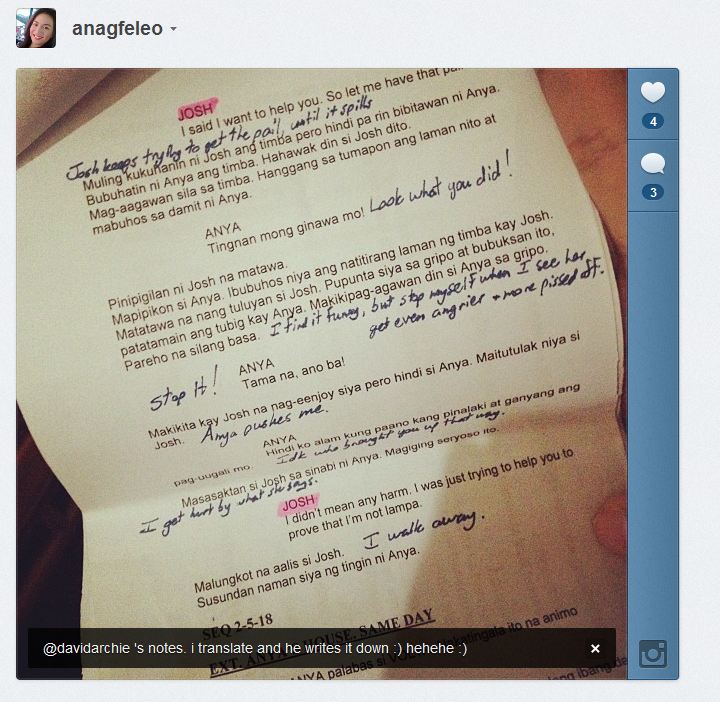 anagfeleo
JOSH
I said I want to help you. So let me have that
Josh keeps trying to get the pail, until it spills
Muling kukuhanin ni Josh ang timba pero hindi pa rin bibitawan ni Anya.
Bubuhatin ni Anya ang timba. Hahawak din si Josh dito.
Mag-aagawan sila sa timba. Hanggang sa tumapon ang laman nito at
mabuhos sa damit ni Anya.
ANYA
Tingnan mong ginawa mo! Look what you did!
Pinipigilan ni Josh na matawa.
Mapipikon si Anya. Ibubuhos niya ang natitirang laman ng timba kay Josh.
Matatawa na nang tuluyan si Josh. Pupunta siya sa gripo at bubuksan ito,
patatamain ang tubig kay Anya. Makikipag-agawan din si Anya sa gripo.
Pareho na silang basa. I find it funny, but stop myself when I see her
get even angrier + more pissed off.
ANYA
Stop it! Tama na, ano ba!
Makikita kay Josh na nag-eenjoy siya pero hindi si Anya. Maitutulak niya si
Josh. Anya pushes me.
ANYA
Hindi ko alam kung paano kang pinalaki at ganyang ang
pag-uugali mo. Idk who brought you up that way.
Masasaktan si Josh sa sinabi ni Anya. Magiging seryoso ito.
I get hurt by what she says.
JOSH
I didn't mean any harm. I was just trying to help you to
prove that I'm not lampa.
Malungkot na aalis si Josh. I walk away.
Susundan naman siya ng tingin ni Anya.
SEQ 2-5-18
EXT. HOUSE. SAME DAY
ito na animo
ANYA palabas si
4
3
@davidarchie 's notes. i translate and he writes it down :) hehehe :)
×